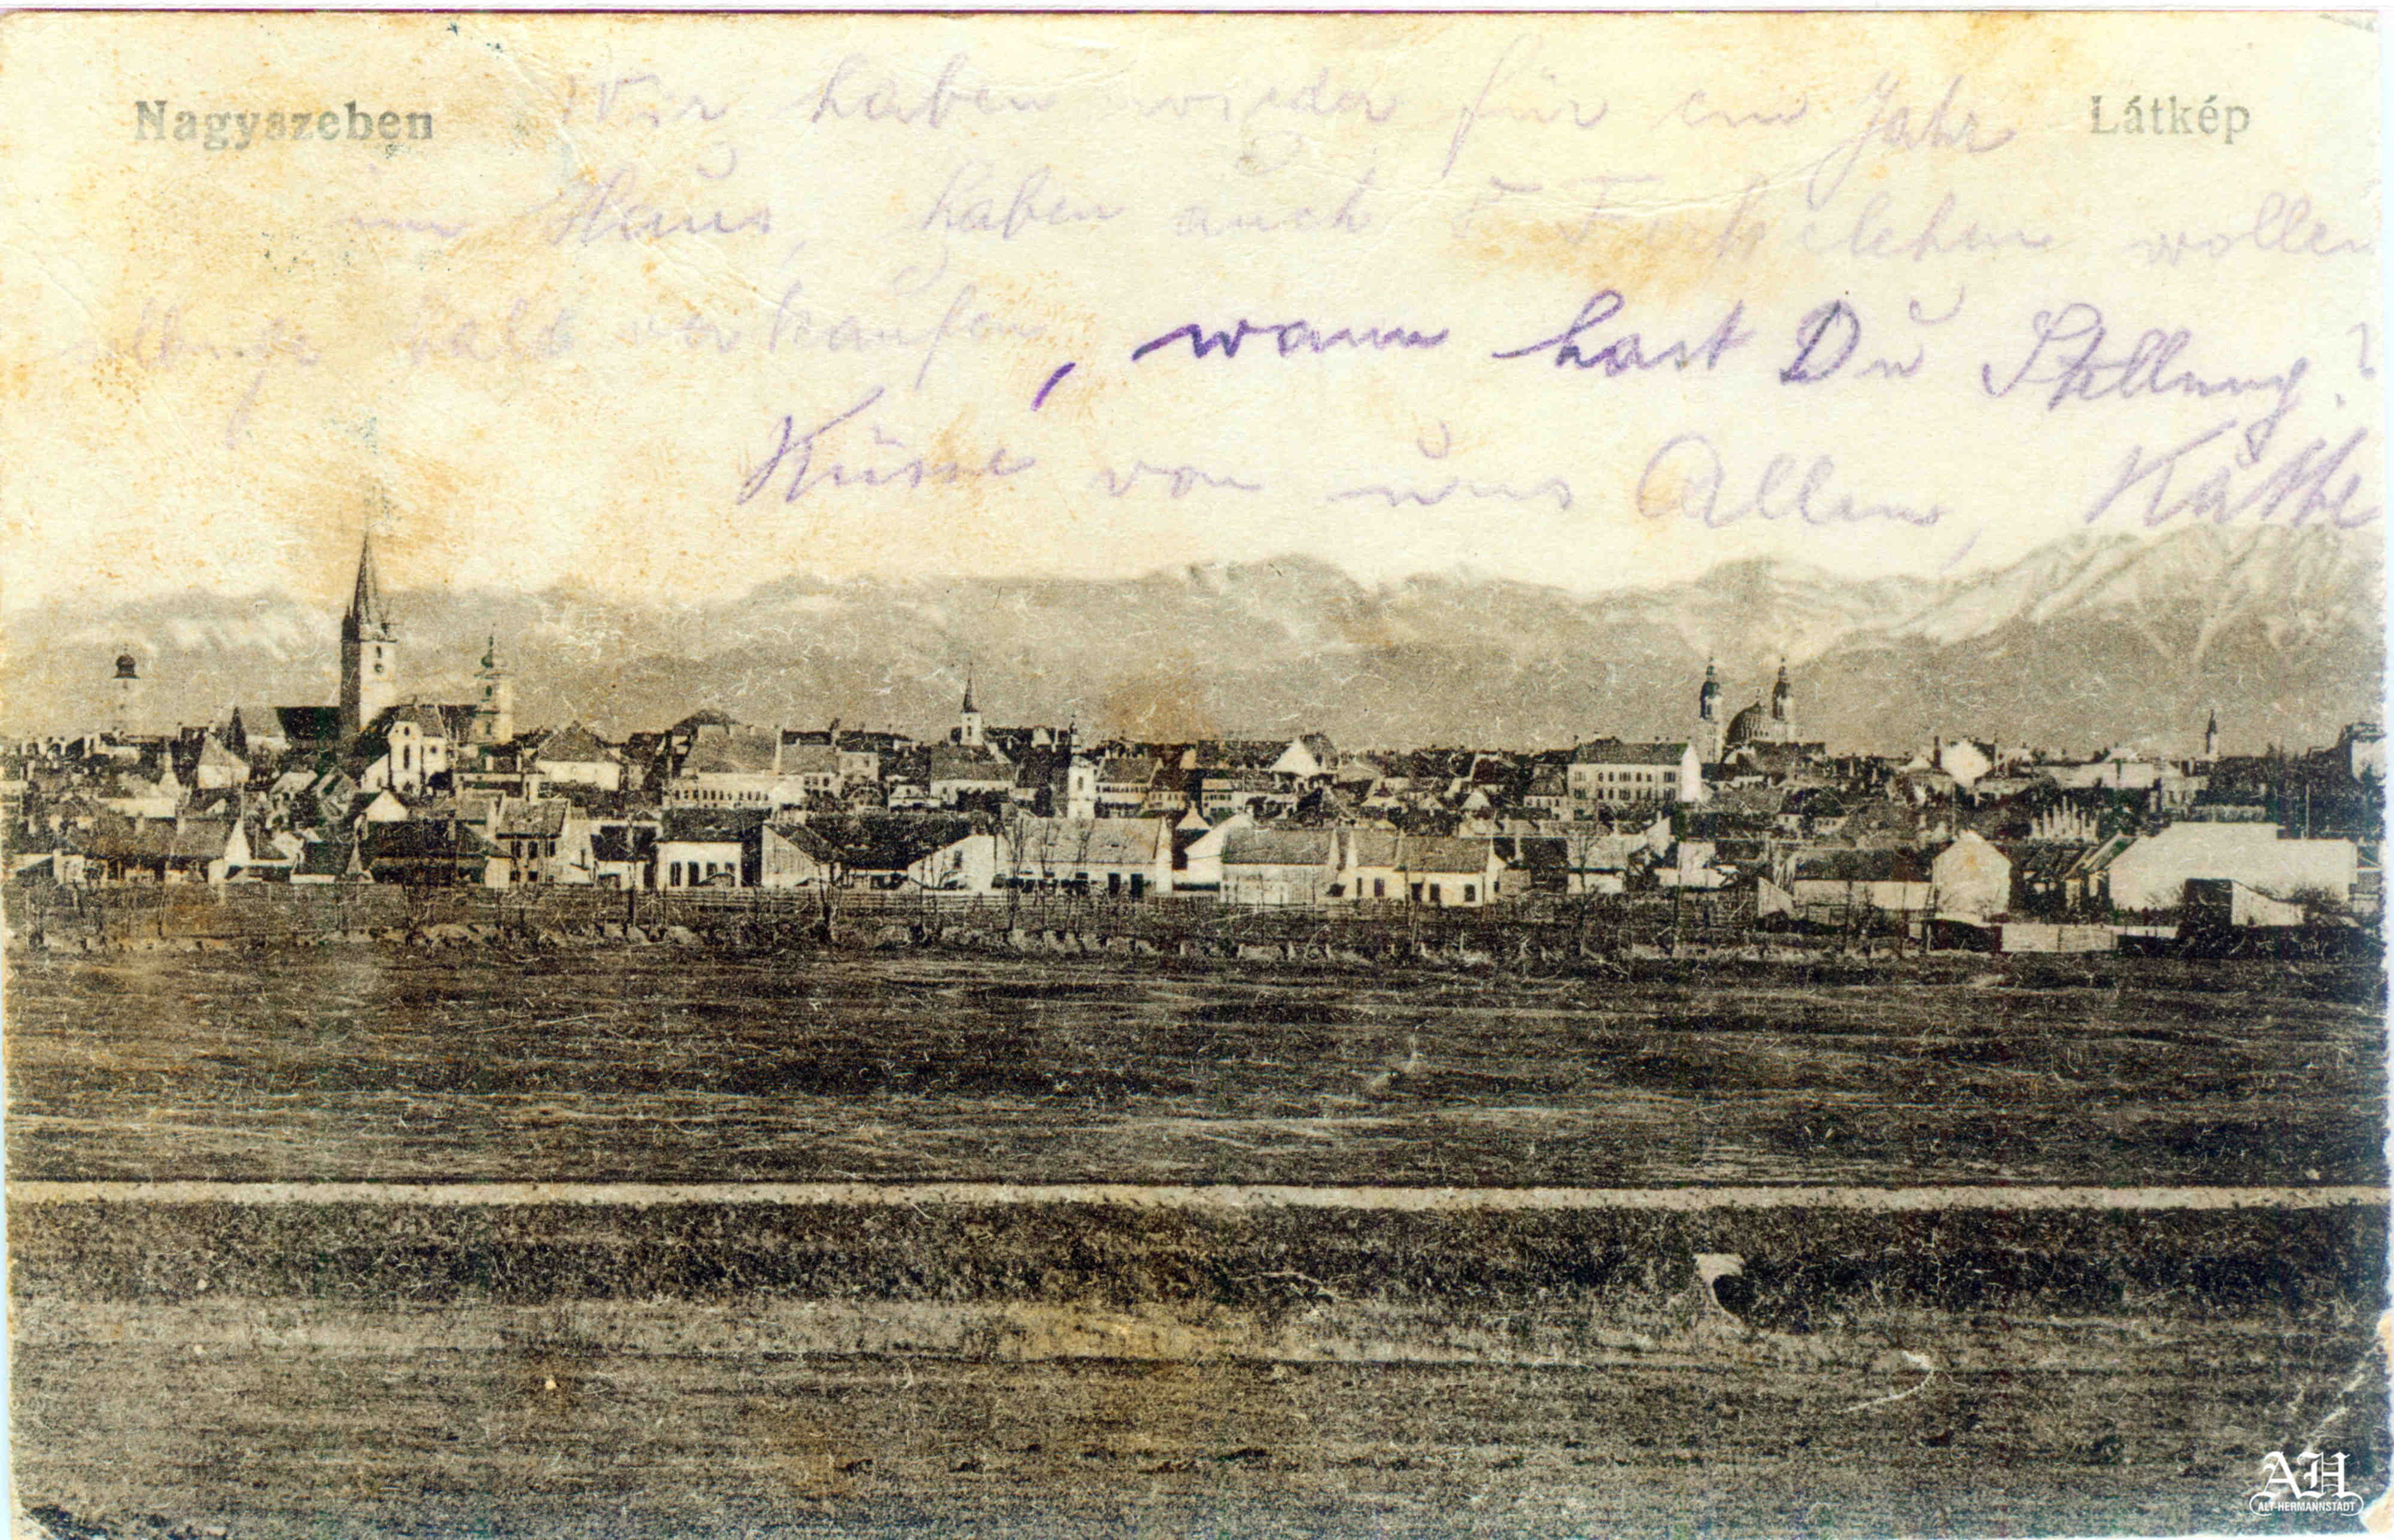 Nagyszeben
Látkép
Wir haben wieder für ein Jahr
im Haus, haben auch wollen
bald verkaufen, wann hast Du Stellung?
Küsse von uns Allen, Käthe
AH
ALT-HERMANNSTADT